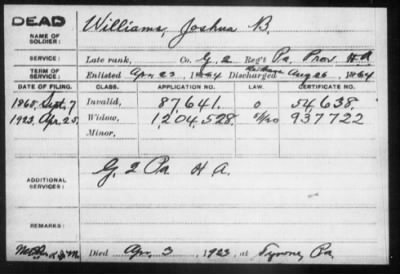 DEAD
NAME OF SOLDIER: Williams, Joshua B.
SERVICE: Late rank, Co. G, 2 Reg't Pa. Prov. H A
TERM OF SERVICE: Enlisted Apr 23, 1864 Discharged Aug 26, 1864
DATE OF FILING. CLASS. APPLICATION NO. LAW. CERTIFICATE NO.
1865, Sept. 7 Invalid, 87,641. 0 54,638.
1923, Apr. 25, Widow, 1,204,528. 937722
Minor,
ADDITIONAL SERVICES: G, 2 Pa H A.
REMARKS:
Died Apr. 3, 1923, at Tyrone, Pa